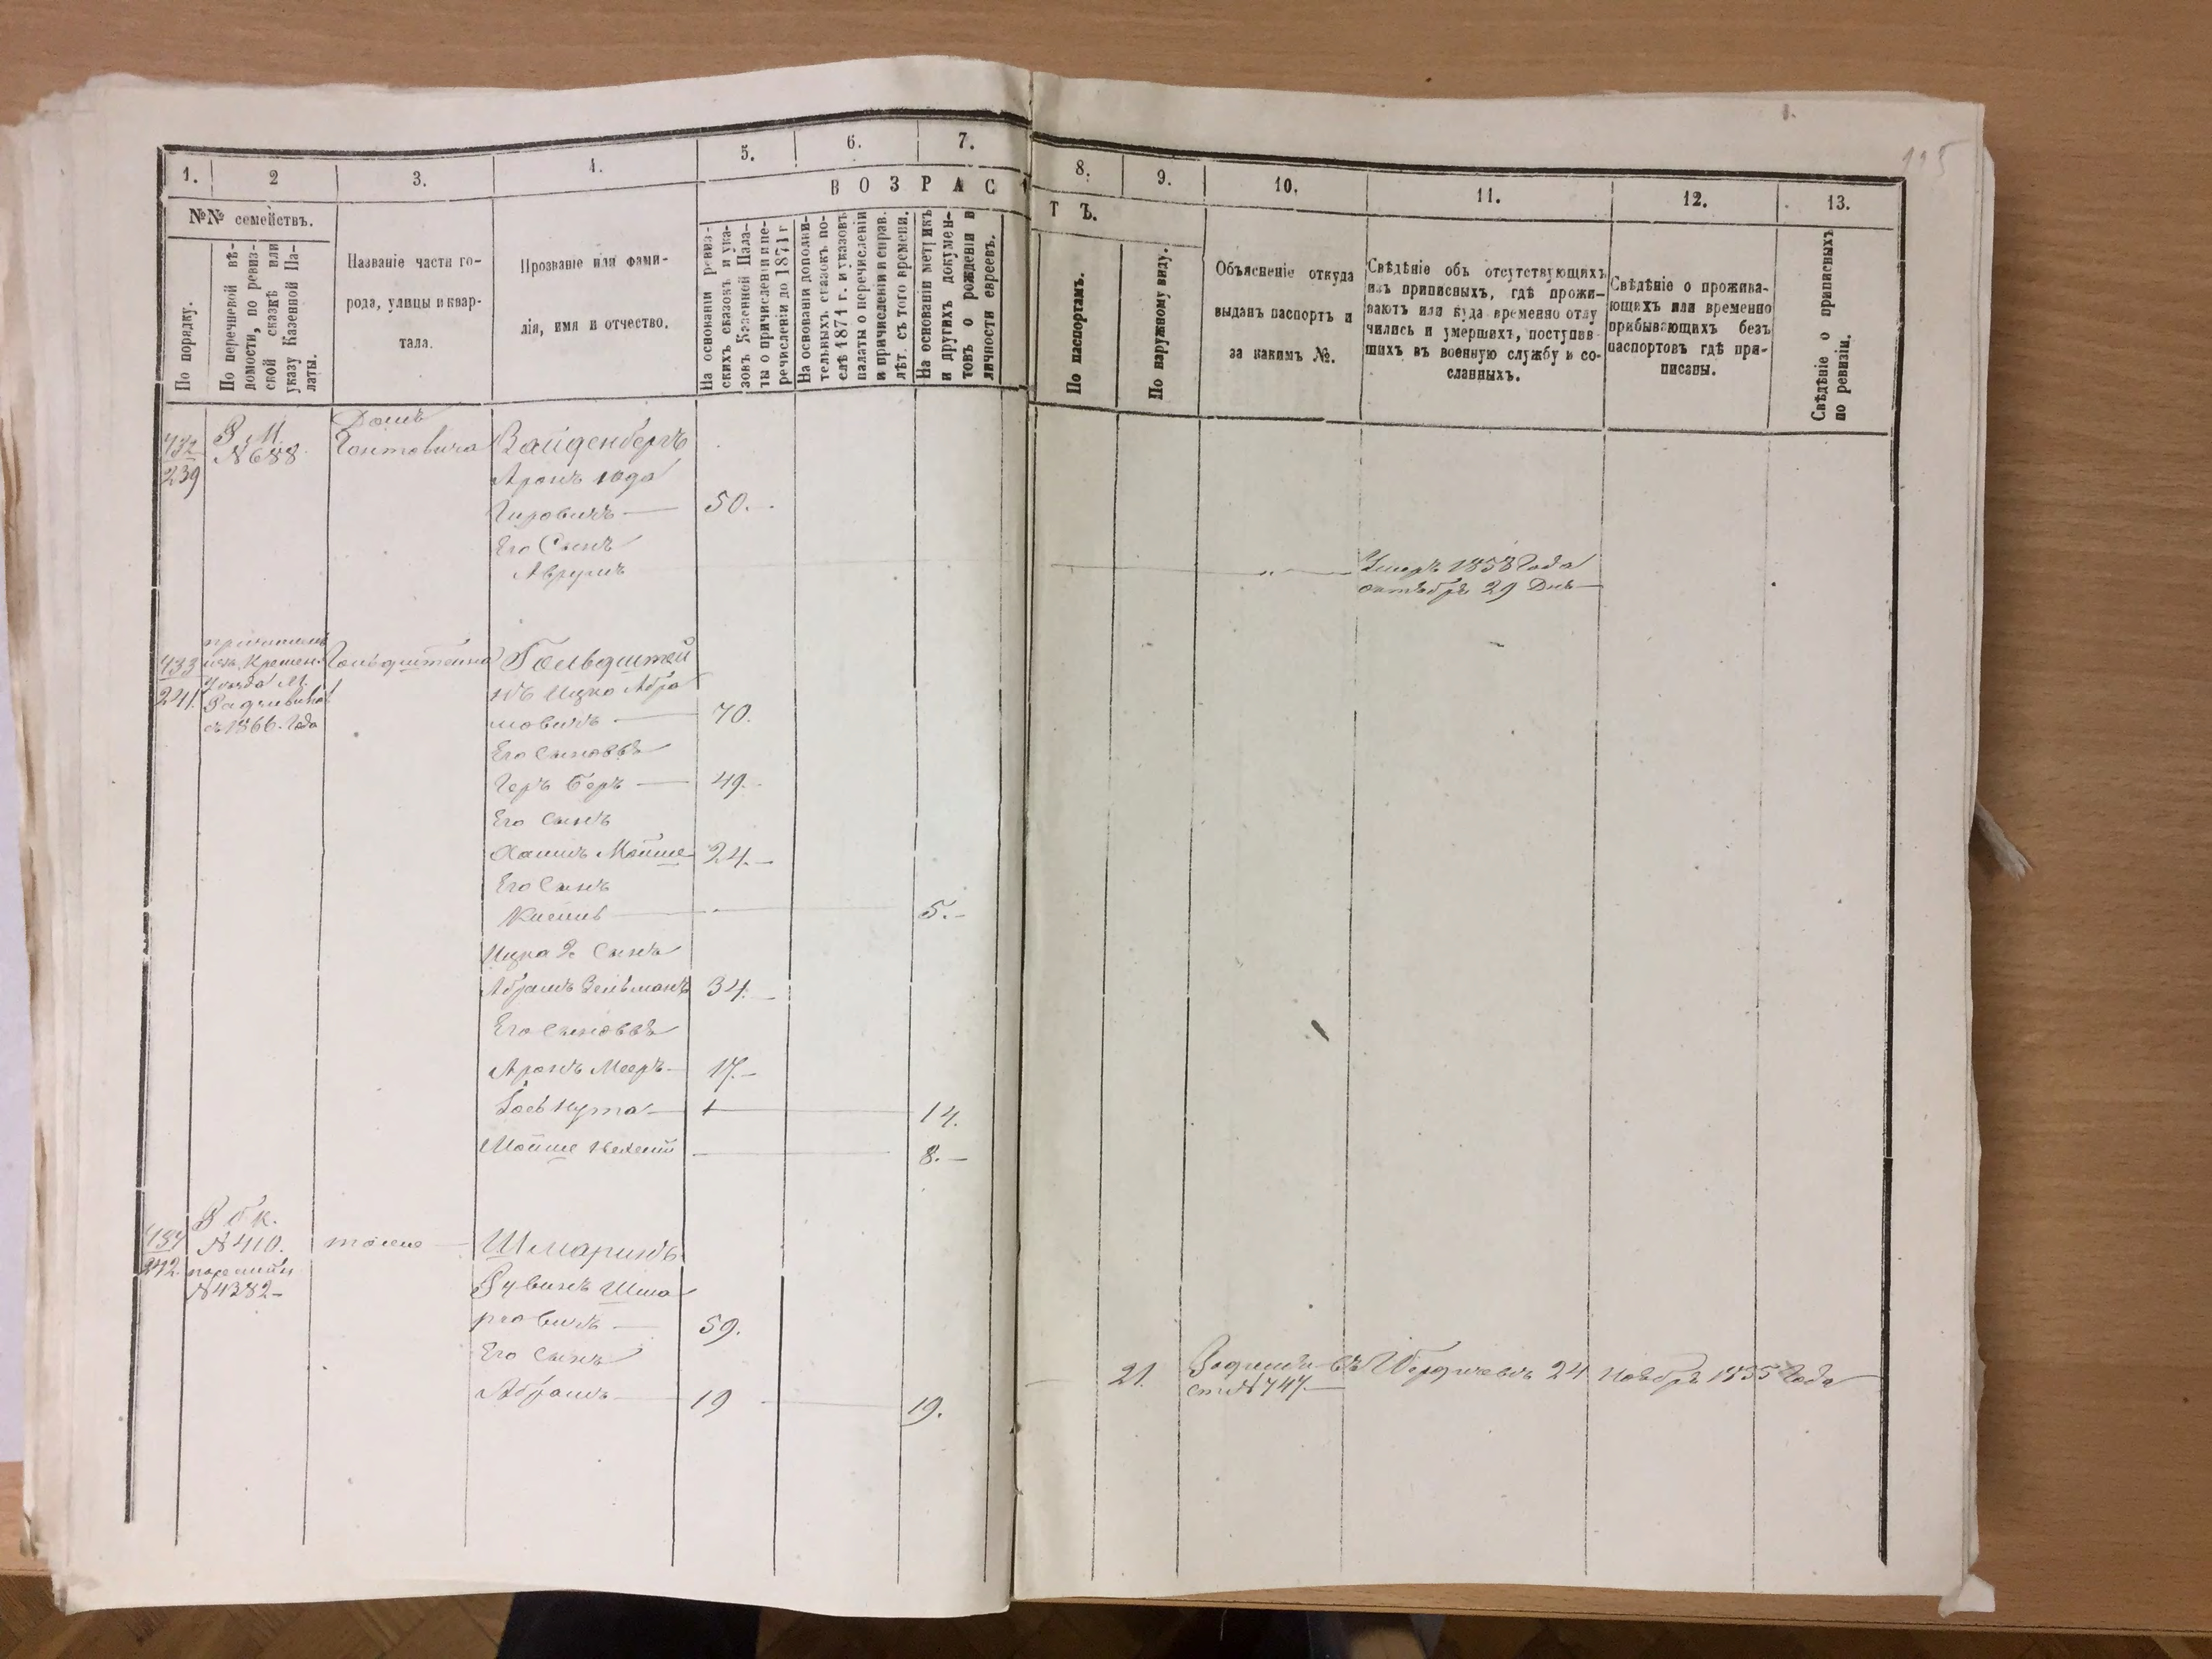 1. 2 3. 4. 5. 6. 7. 8. 9. 10. 11. 12. 13.
ВОЗРАСТЪ.
№№ семействъ.
По порядку.
По перечневой вѣ-
домости, по ревиз-
ской сказкѣ или
указу Казенной Па-
латы.
Названіе части го-
рода, улицы и квар-
тала.
Прозваніе или фами-
лія, имя и отчество.
На основаніи ревиз-
скихъ сказокъ и ука-
зовъ Казенней Пала-
ты о причисленіи и пе-
речисленіи до 1871 г
На основаніи дополни-
тельныхъ сказокъ по-
слѣ 1871 г. и указовъ
палаты о перечисленіи
и причисленіи и справ.
лѣт. съ того времени.
На основаніи метрикъ
и другихъ докумен-
товъ о рожденіи в
личности евреевъ.
По паспортамъ.
По наружному виду.
Объясненіе откуда
выданъ паспортъ и
за какимъ №.
Свѣдѣніе объ отсутствующихъ
изъ приписныхъ, гдѣ прожи-
ваютъ или куда временно отлу
чились и умершихъ, поступив
шихъ въ военную службу и со-
сланныхъ.
Свѣдѣніе о прожива-
ющихъ или временно
прибывающихъ безъ
паспортовъ гдѣ при-
писаны.
Свѣдѣніе о приписныхъ
по ревизіи.
432
239
Р. М.
№ 688
Домъ
Вайденбергъ
Аронъ
50.
Его Сынъ
Аврумъ
Умеръ 1858 Года
октября 29 Дня
433
241.
Уезда М.
Радзивилов
съ 1866. Года
Гольдштейна
Гольдштей
нъ Ицко Абра
мовичъ 70.
Его Сыновья
Герь Беръ 49.
Его Сынъ
Хаимъ Мойше 24.
Его Сынъ
5.
Ицка 2й Сынъ
Абрамъ Зельманъ 34.
Его Сыновья
Аронъ Мееръ 17.
14.
Мойше 8.
434
242.
Р б к.
№ 410.
№ 4382
тоже
Шмаринъ
Рувинъ Шма
ровичъ 59.
Его Сынъ
Абрамъ 19 19. 21. въ Бердичевъ 24 Ноября 1835 Года
№ 747.